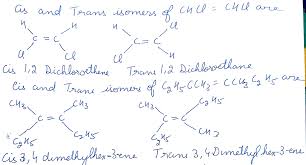 Cis and Trans isomers of CHCl = CHCl are
H H H Cl
C = C C = C
Cl Cl Cl H
Cis 1,2 Dichloroethene Trans 1,2 Dichloroethane
Cis and Trans isomers of C2H5CCH3 = CCH3C2H5 are
CH3 CH3 CH3 C2H5
C = C C = C
C2H5 C2H5 C2H5 CH3
Cis 3,4 dimethylhex-3-ene Trans 3,4 Dimethylhex-3-ene